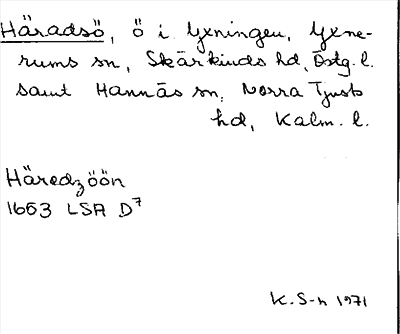 Häradsö, ö i Yxningen, Yxne-
rums sn, Skärkinds hd, Östg. l.
samt Hannäs sn, Norra Tjusts
hd, Kalm. l.
Häredzöön
1653 LSA D7
K. S-h 1971